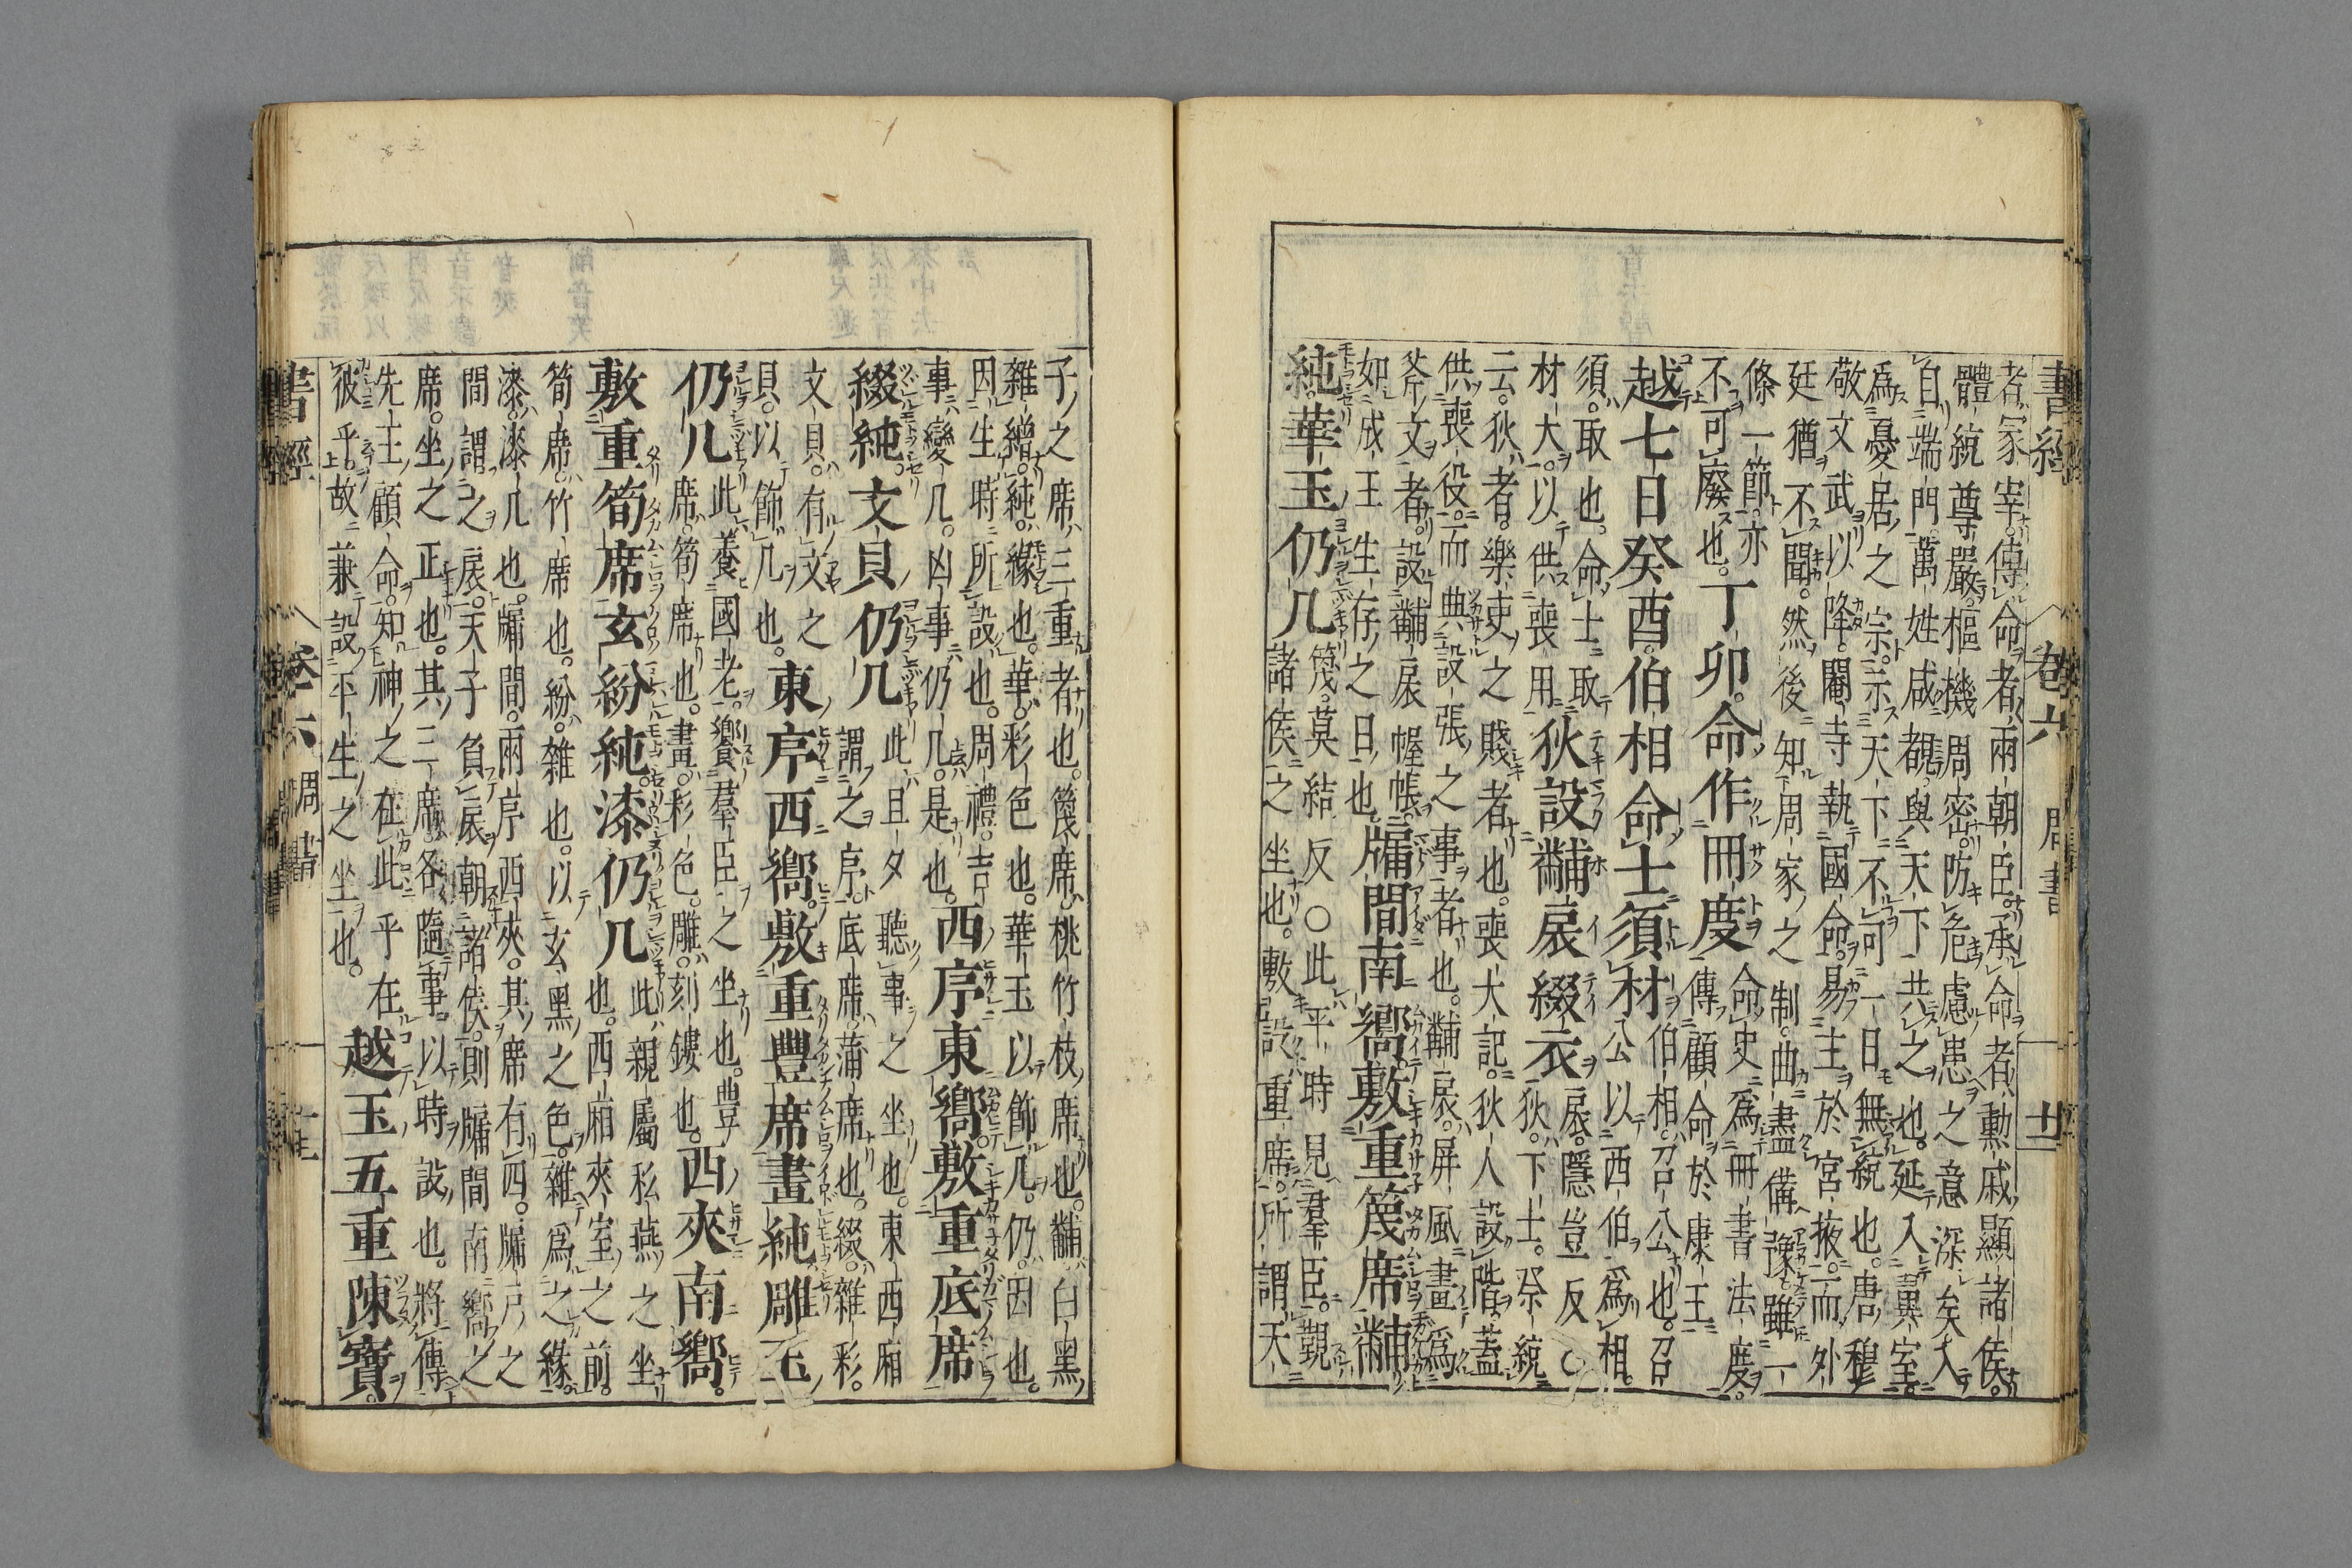 書經 卷六 周書 廿二
者冢宰。傳命者。兩朝臣。承命者。勳戚顯諸侯。
體統尊嚴。樞機周密。防危慮患之意深矣。入
自端門。萬姓咸覩。與天下共之也。延入翼室。
爲憂居之宗。示天下不可一日無統也。唐穆
敬文武以降。閹寺執國命。易主於宮掖。而外
廷猶不聞。然後知周家之制。曲盡備豫。雖一
條一節。亦
不可廢也。
丁卯。命作冊度
命史爲冊書法度。
傳顧命於康王。
越七日癸酉。伯相命士須材
伯相。召公也。召
公以西伯爲相。
須。取也。命士取
材大。以供喪用。
狄設黼扆綴衣
扆。隱豈反○
狄。下士。祭統
云。狄者。樂吏之賤者也。喪大記。狄人設階。蓋
供喪役。而典設張之事者也。黼扆。屏風畫爲
斧文者。設黼扆幄帳。
如成王生存之日也。
牖間南嚮。敷重篾席黼
純。華玉仍几
篾。莫結反○此平時見羣臣。覲
諸侯之坐也。敷設重席。所謂天
子之席三重者也。篾席。桃竹枝席也。黼。白黑
雜繒。純。緣也。華。彩色也。華玉以飾几。仍。因也。
因生時所設也。周禮。吉
事變几。凶事仍几。是也。
西序東嚮。敷重底席
綴純。文貝仍几
此旦夕聽事之坐也。東西廂
謂之序。底席。蒲席也。綴。雜彩。
文貝。有文之
貝。以飾几也。
東序西嚮。敷重豐席畫純雕玉
仍几
此養國老。饗羣臣之坐也。豐
席。筍席也。畫。彩色。雕。刻鏤也。
西夾南嚮。
敷重筍席玄紛純。漆仍几
此親屬私燕之坐
也。西廂夾室之前。
筍席。竹席也。紛。雜也。以玄黑之色。雜爲之緣。
漆。漆几也。牖間。兩序。西夾。其席有四。牖戶之
間謂之扆。天子負扆朝諸侯。則牖間南嚮之
席。坐之正也。其三席。各隨事。以時設也。將傳
先王顧命。知神之在此乎在
彼乎。故兼設平生之坐也。
越玉五重陳寶。
書經 卷六 周書